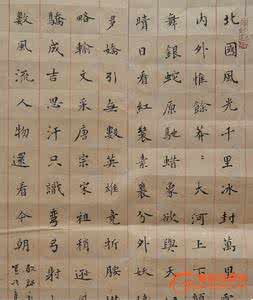 北國風光千里冰封萬里
內外惟餘莽々大河上下
舞銀蛇原馳蠟象欲與天
晴日看紅裝素裹分外妖
多嬌引無數英雄競折腰
略輸文采唐宗宋祖稍遜
驕成吉思汗只識彎弓射
數風流人物還看今朝